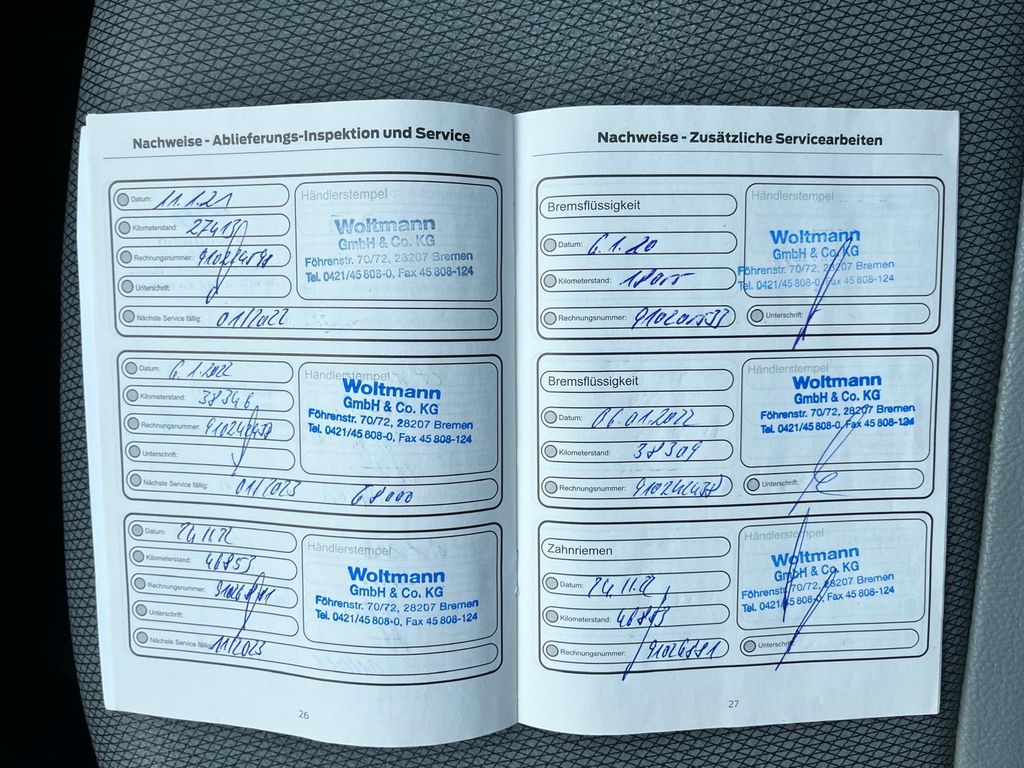 Nachweise - Ablieferungs-Inspektion und Service
Datum: 11.1.21
Kilometerstand:
Rechnungsnummer:
Unterschrift:
Nächste Service fällig: 01/2022
Händlerstempel
Woltmann
GmbH & Co. KG
Föhrenstr. 70/72, 28207 Bremen
Tel. 0421/45 808-0, Fax 45 808-124
Datum: 6.1.2022
Kilometerstand: 38346
Rechnungsnummer:
Unterschrift:
Nächste Service fällig: 01/2023 68000
Händlerstempel
Woltmann
GmbH & Co. KG
Föhrenstr. 70/72, 28207 Bremen
Tel. 0421/45 808-0, Fax 45 808-124
Datum: 24.11.22
Kilometerstand: 46853
Rechnungsnummer:
Unterschrift:
Nächste Service fällig: 11/2023
Händlerstempel
Woltmann
GmbH & Co. KG
Föhrenstr. 70/72, 28207 Bremen
Tel. 0421/45 808-0, Fax 45 808-124
26
Nachweise - Zusätzliche Servicearbeiten
Bremsflüssigkeit
Datum: 6.1.20
Kilometerstand:
Rechnungsnummer:
Händlerstempel
Woltmann
GmbH & Co. KG
Föhrenstr. 70/72, 28207 Bremen
Tel. 0421/45 808-0, Fax 45 808-124
Unterschrift:
Bremsflüssigkeit
Datum: 06.01.2022
Kilometerstand: 38309
Rechnungsnummer:
Händlerstempel
Woltmann
GmbH & Co. KG
Föhrenstr. 70/72, 28207 Bremen
Tel. 0421/45 808-0, Fax 45 808-124
Unterschrift:
Zahnriemen
Datum: 24.11.22
Kilometerstand: 46853
Rechnungsnummer:
Händlerstempel
Woltmann
GmbH & Co. KG
Föhrenstr. 70/72, 28207 Bremen
Tel. 0421/45 808-0, Fax 45 808-124
Unterschrift:
27